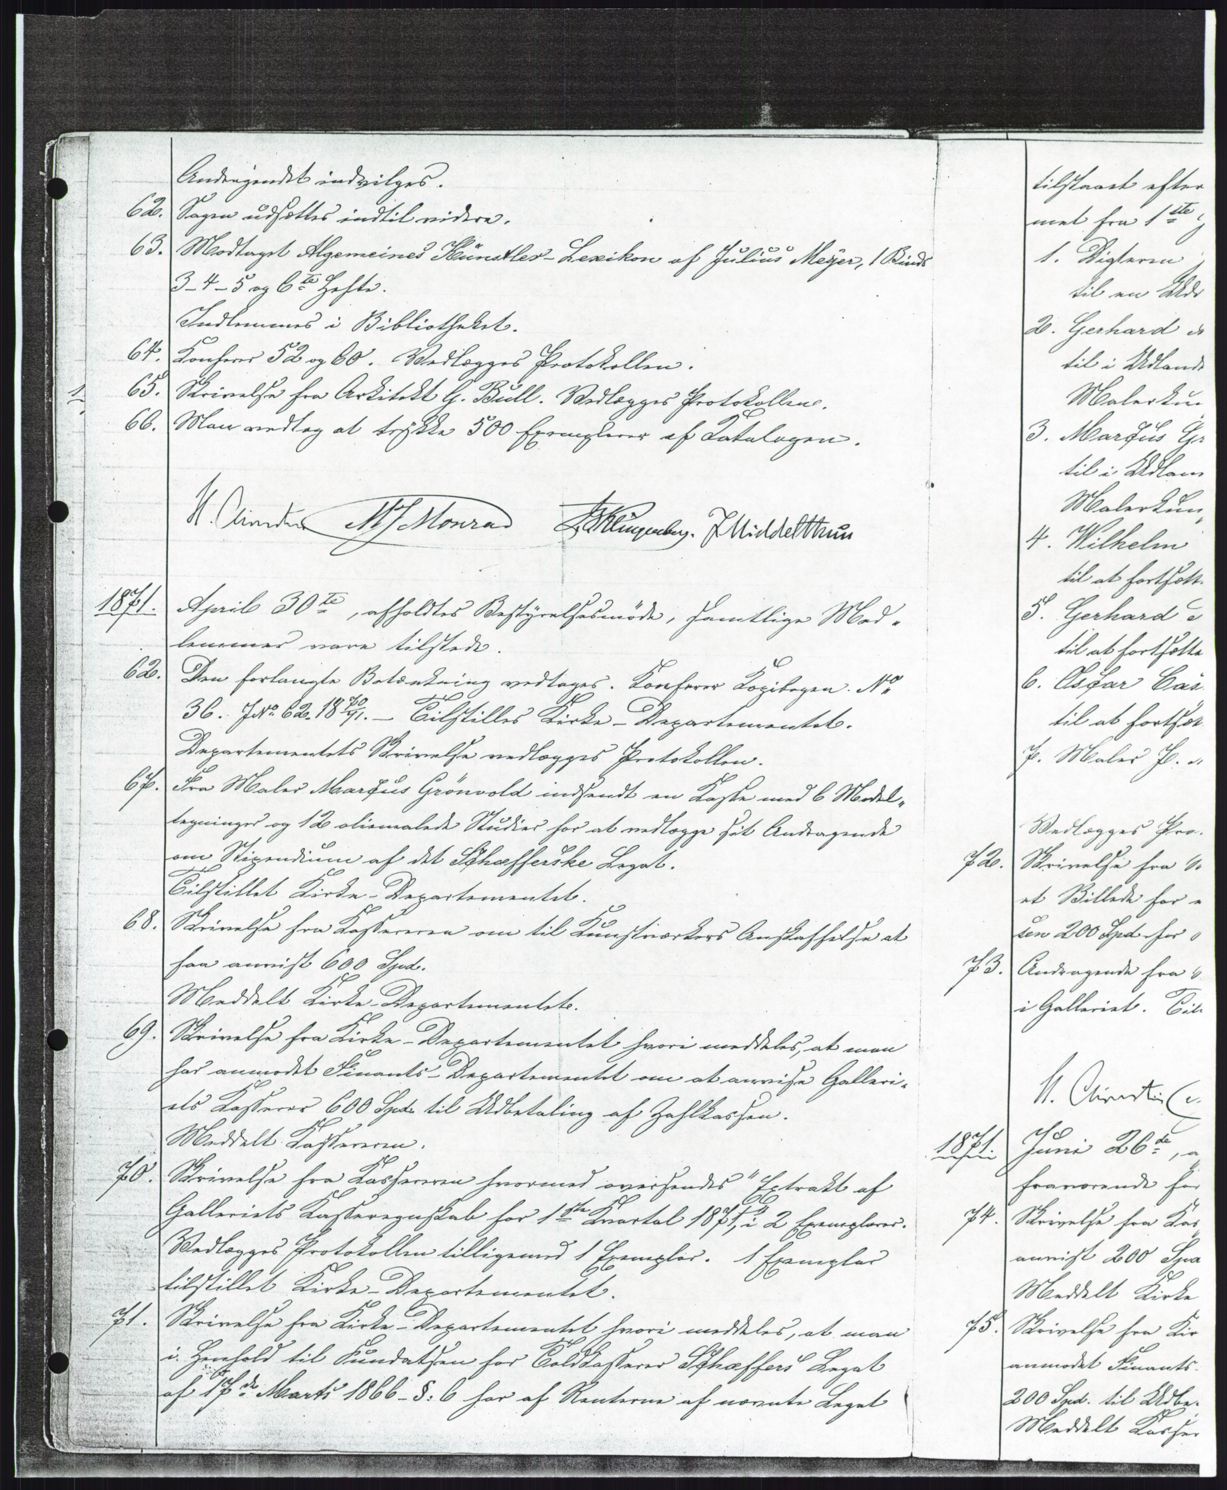 Andragendet indvilges.
62. Sagen udsættes indtil videre.
63. Modtaget Algemeines Künstler-Lexikon af Julius Meyer, 1 Binds
3-4-5 og 6te Hefte.
Indlemmes i Bibliotheket.
64. Konferer 52 og 60. Vedlægges Protokollen.
65. Skrivelse fra Arkitekt G. Bull. Vedlægges Protokollen.
66. Man vedtog at trykke 500 Exemplarer af Katalogen.
MJ Monrad Klingenberg. J Middelthun
1871. April 30te, afholdtes Bestyrelsesmöde, samtlige Med-
lemmer vare tilstede.
62. Den forlangte Betænkning vedtages. Konferer Kopibogen No
36. J No 62. 1870/71. – Tilstilles Kirke-Departementet.
Departementets Skrivelse vedlægges Protokollen.
67. Fra Maler Marcus Grönvold indsendt en Kasse med 6 Model-
tegninger og 12 oliemalede Studier for at vedlægge sit Andragende
om Stipendium af det Schæfferske Legat.
Tilstillet Kirke-Departementet.
68. Skrivelse fra Kassereren om til Kunstværkers Anskaffelse at
faa anvist 600 Spd.
Meddelt Kirke-Departementet.
69. Skrivelse fra Kirke-Departementet hvori meddeles, at man
har anmodet Finants-Departementet om at anvise Galleri-
ets Kasserer 600 Spd. til Udbetaling af Zahlkassen.
Meddelt Kassereren.
70. Skrivelse fra Kassereren hvormed oversendes "Extrakt af
Galleriets Kasseregnskab for 1ste Kvartal 1871," i 2 Exemplarer.
Vedlægges Protokollen tilligemed 1 Exemplar. 1 Exemplar
tilstillet Kirke-Departementet.
71. Skrivelse fra Kirke-Departementet hvori meddeles, at man
i Henhold til Fundatsen for Toldkasserer Schæffers Legat
af 17de Marts 1866 - §: 6 har af Renterne af nævnte Legat
tilstaaet efter
met fra 1ste
1. Digteren
til en
2. Gerhard
til i Udland
Malerkun
3. Marcus Gr
til i Udlan
Malerkun
4. Wilhelm
til at fortsætt
5. Gerhard
til at fortsætte
6. Oscar
til at fortsæt
7. Maler P.
Vedlægges Pro
72. Skrivelse fra
et Billede for
200 Spd for
73. Andragende fra
i Galleriet. Til
1871. Juni 26de,
fraværende for
74. Skrivelse fra Kas
anvist 200 Spd
Meddelt Kirke
75. Skrivelse fra Kir
anmodet Finants-
200 Spd. til Udbe-
Meddelt Kasser